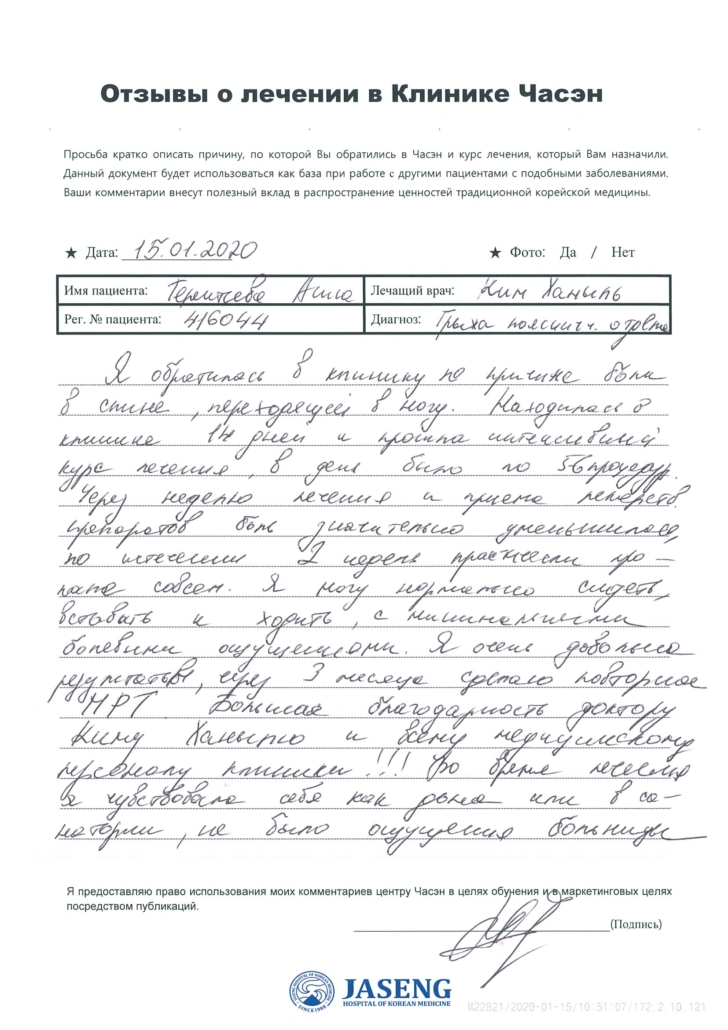 Отзывы о лечении в Клинике Часэн
Просьба кратко описать причину, по которой Вы обратились в Часэн и курс лечения, который Вам назначили.
Данный документ будет использоваться как база при работе с другими пациентами с подобными заболеваниями.
Ваши комментарии внесут полезный вклад в распространение ценностей традиционной корейской медицины.
★ Дата: 15.01.2020 ★ Фото: Да / Нет
Имя пациента: Лечащий врач: Ким Ханыль
Рег. № пациента: 416044 Диагноз: Грыха пояснич. отдела
Я обратилась в клинику по причине боли
в спине, переходящей в ногу. Находилась в
клинике 14 дней и прошла интенсивный
курс лечения, в день было по 5-6 процедур.
Через неделю лечения и приема лекарств.
препаратов боль значительно уменьшилась,
по истечении 2 недель практически про-
пала совсем. Я могу нормально сидеть,
вставать и ходить, с минимальными
болевыми ощущениями. Я очень довольна
результатом, через 3 месяца сделаю повторное
МРТ Большая благодарность доктору
Киму Ханылю и всему медицинскому
персоналу клиники!!! Во время лечения
я чувствовала себя как дома или в са-
натории, не было ощущения больницы
Я предоставляю право использования моих комментариев центру Часэн в целях обучения и в маркетинговых целях
посредством публикаций.
(Подпись)
JASENG
HOSPITAL OF KOREAN MEDICINE
M22821/2020-01-15/10:51:07/172.2.10.121